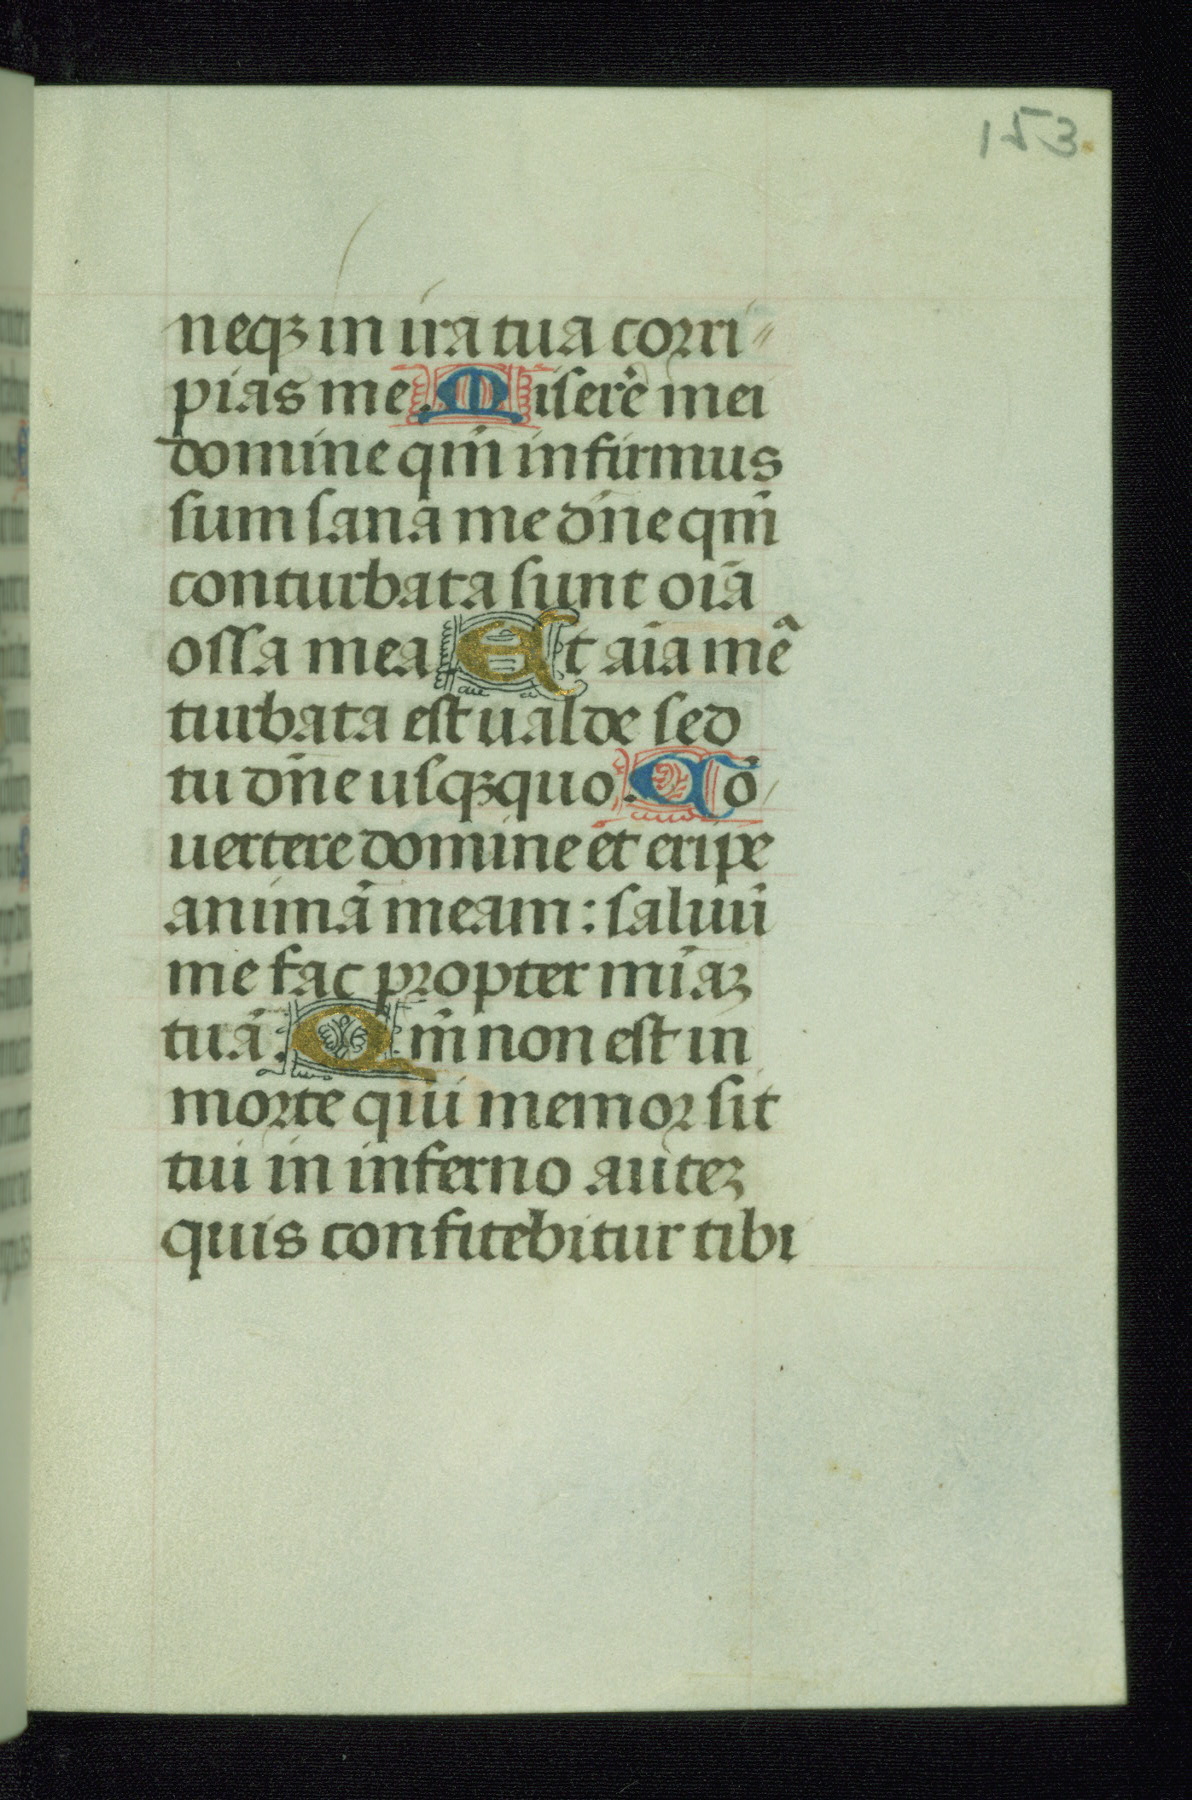 153
neqꝫ in ira tua corri〃
pias me. Miserē mei
domine qm̄ infirmus
sum sana me dn̄e qm̄
conturbata sunt oīa
ossa mea. Et aīa mē
turbata est ualde sed
tu dn̄e usqꝫquo. Cō
uertere domine et eripe
animā meam: saluū
me fac propter mīaꝫ
tuā. Qm̄ non est in
morte qui memor sit
tui in inferno auteꝫ
quis confitebitur tibi